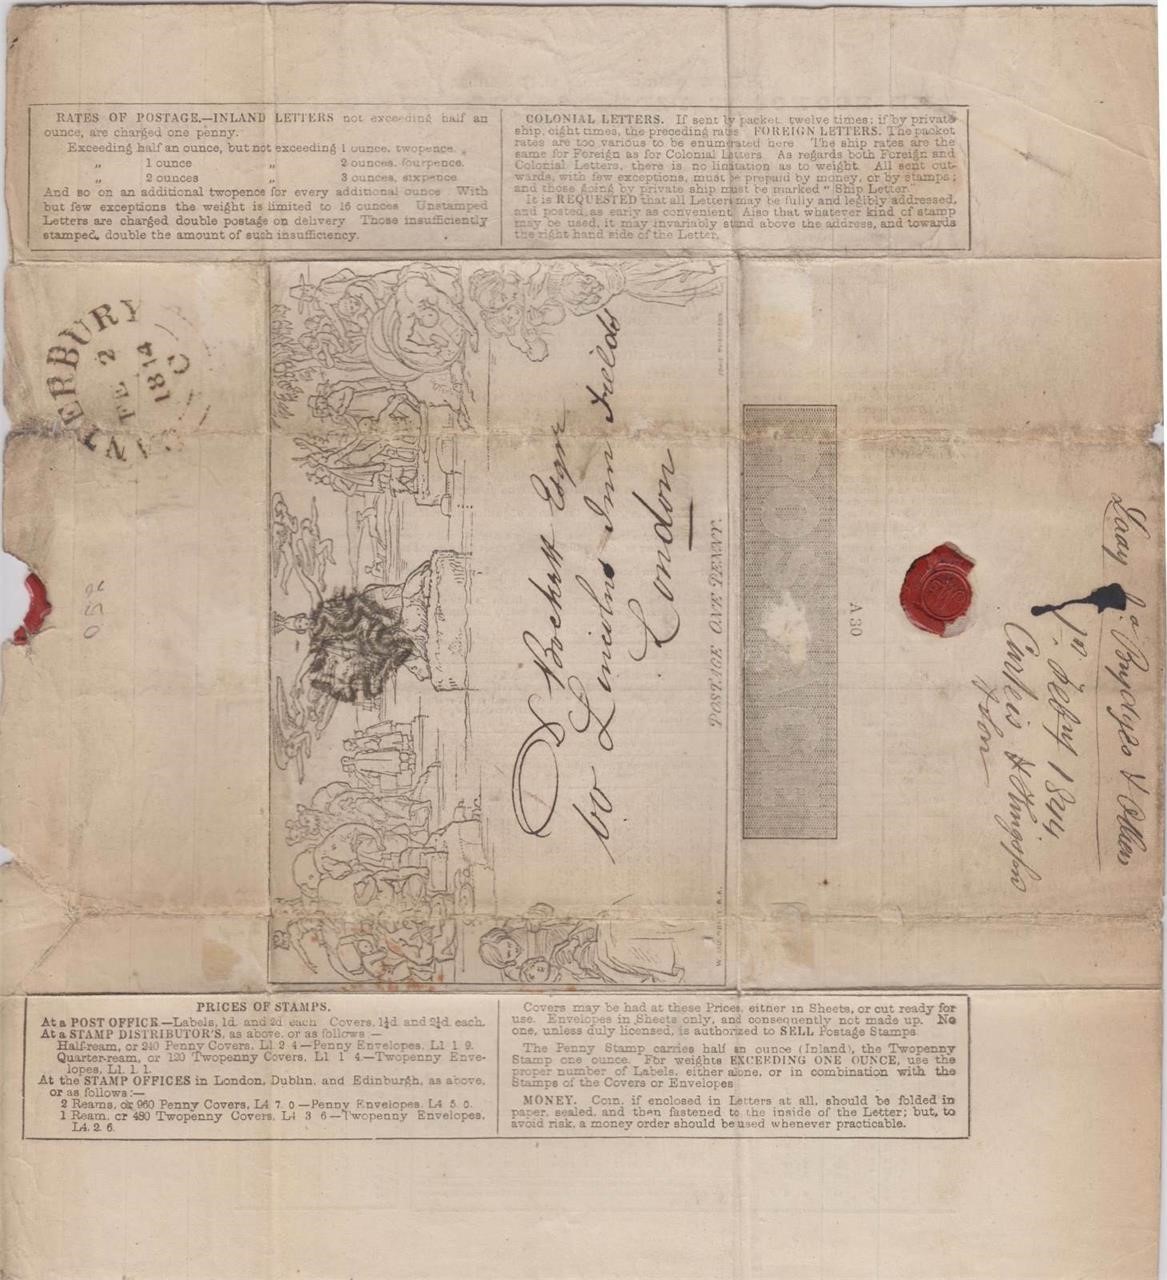 RATES OF POSTAGE.—INLAND LETTERS not exceeding half an
ounce, are charged one penny.
Exceeding half an ounce, but not exceeding 1 ounce, twopence.
„ 1 ounce „ 2 ounces, fourpence.
„ 2 ounces „ 3 ounces, sixpence
And so on an additional twopence for every additional ounce With
but few exceptions the weight is limited to 16 ounces Unstamped
Letters are charged double postage on delivery Those insufficiently
stamped, double the amount of such insufficiency.
COLONIAL LETTERS. If sent by packet twelve times; if by private
ship, eight times, the preceding rates FOREIGN LETTERS. The packet
rates are too various to be enumerated here The ship rates are the
same for Foreign as for Colonial Letters As regards both Foreign and
Colonial Letters, there is no limitation as to weight. All sent out-
wards, with few exceptions, must be prepaid by money, or by stamps;
and those going by private ship must be marked "Ship Letter."
It is REQUESTED that all Letters may be fully and legibly addressed,
and posted as early as convenient Also that whatever kind of stamp
may be used, it may invariably stand above the address, and towards
the right hand side of the Letter.
CANTERBURY
FE 2
1844
C
D Bockett Esqr
60 Lincolns Inn Fields
London
POSTAGE ONE PENNY.
W. MULREADY R.A.
JOHN THOMPSON
A 30
Lady
& Others
1st Feby 1844
PRICES OF STAMPS.
At a POST OFFICE—Labels, 1d. and 2d each Covers, 1¼d and 2¼d. each.
At a STAMP DISTRIBUTOR'S, as above, or as follows —
Half-ream, or 240 Penny Covers, L1 2 4—Penny Envelopes, L1 1 9.
Quarter-ream, or 120 Twopenny Covers, L1 1 4—Twopenny Enve-
lopes, L1. 1. 1.
At the STAMP OFFICES in London, Dublin, and Edinburgh, as above,
or as follows:—
2 Reams, or 960 Penny Covers, L4 7. 0—Penny Envelopes, L4 5. 0.
1 Ream, or 480 Twopenny Covers, L4 3 6—Twopenny Envelopes,
L4. 2. 6.
Covers may be had at these Prices, either in Sheets, or cut ready for
use. Envelopes in Sheets only, and consequently not made up. No
one, unless duly licensed, is authorized to SELL Postage Stamps
The Penny Stamp carries half an ounce (Inland), the Twopenny
Stamp one ounce. For weights EXCEEDING ONE OUNCE, use the
proper number of Labels, either alone, or in combination with the
Stamps of the Covers or Envelopes
MONEY. Coin, if enclosed in Letters at all, should be folded in
paper, sealed, and then fastened to the inside of the Letter; but, to
avoid risk, a money order should be used whenever practicable.